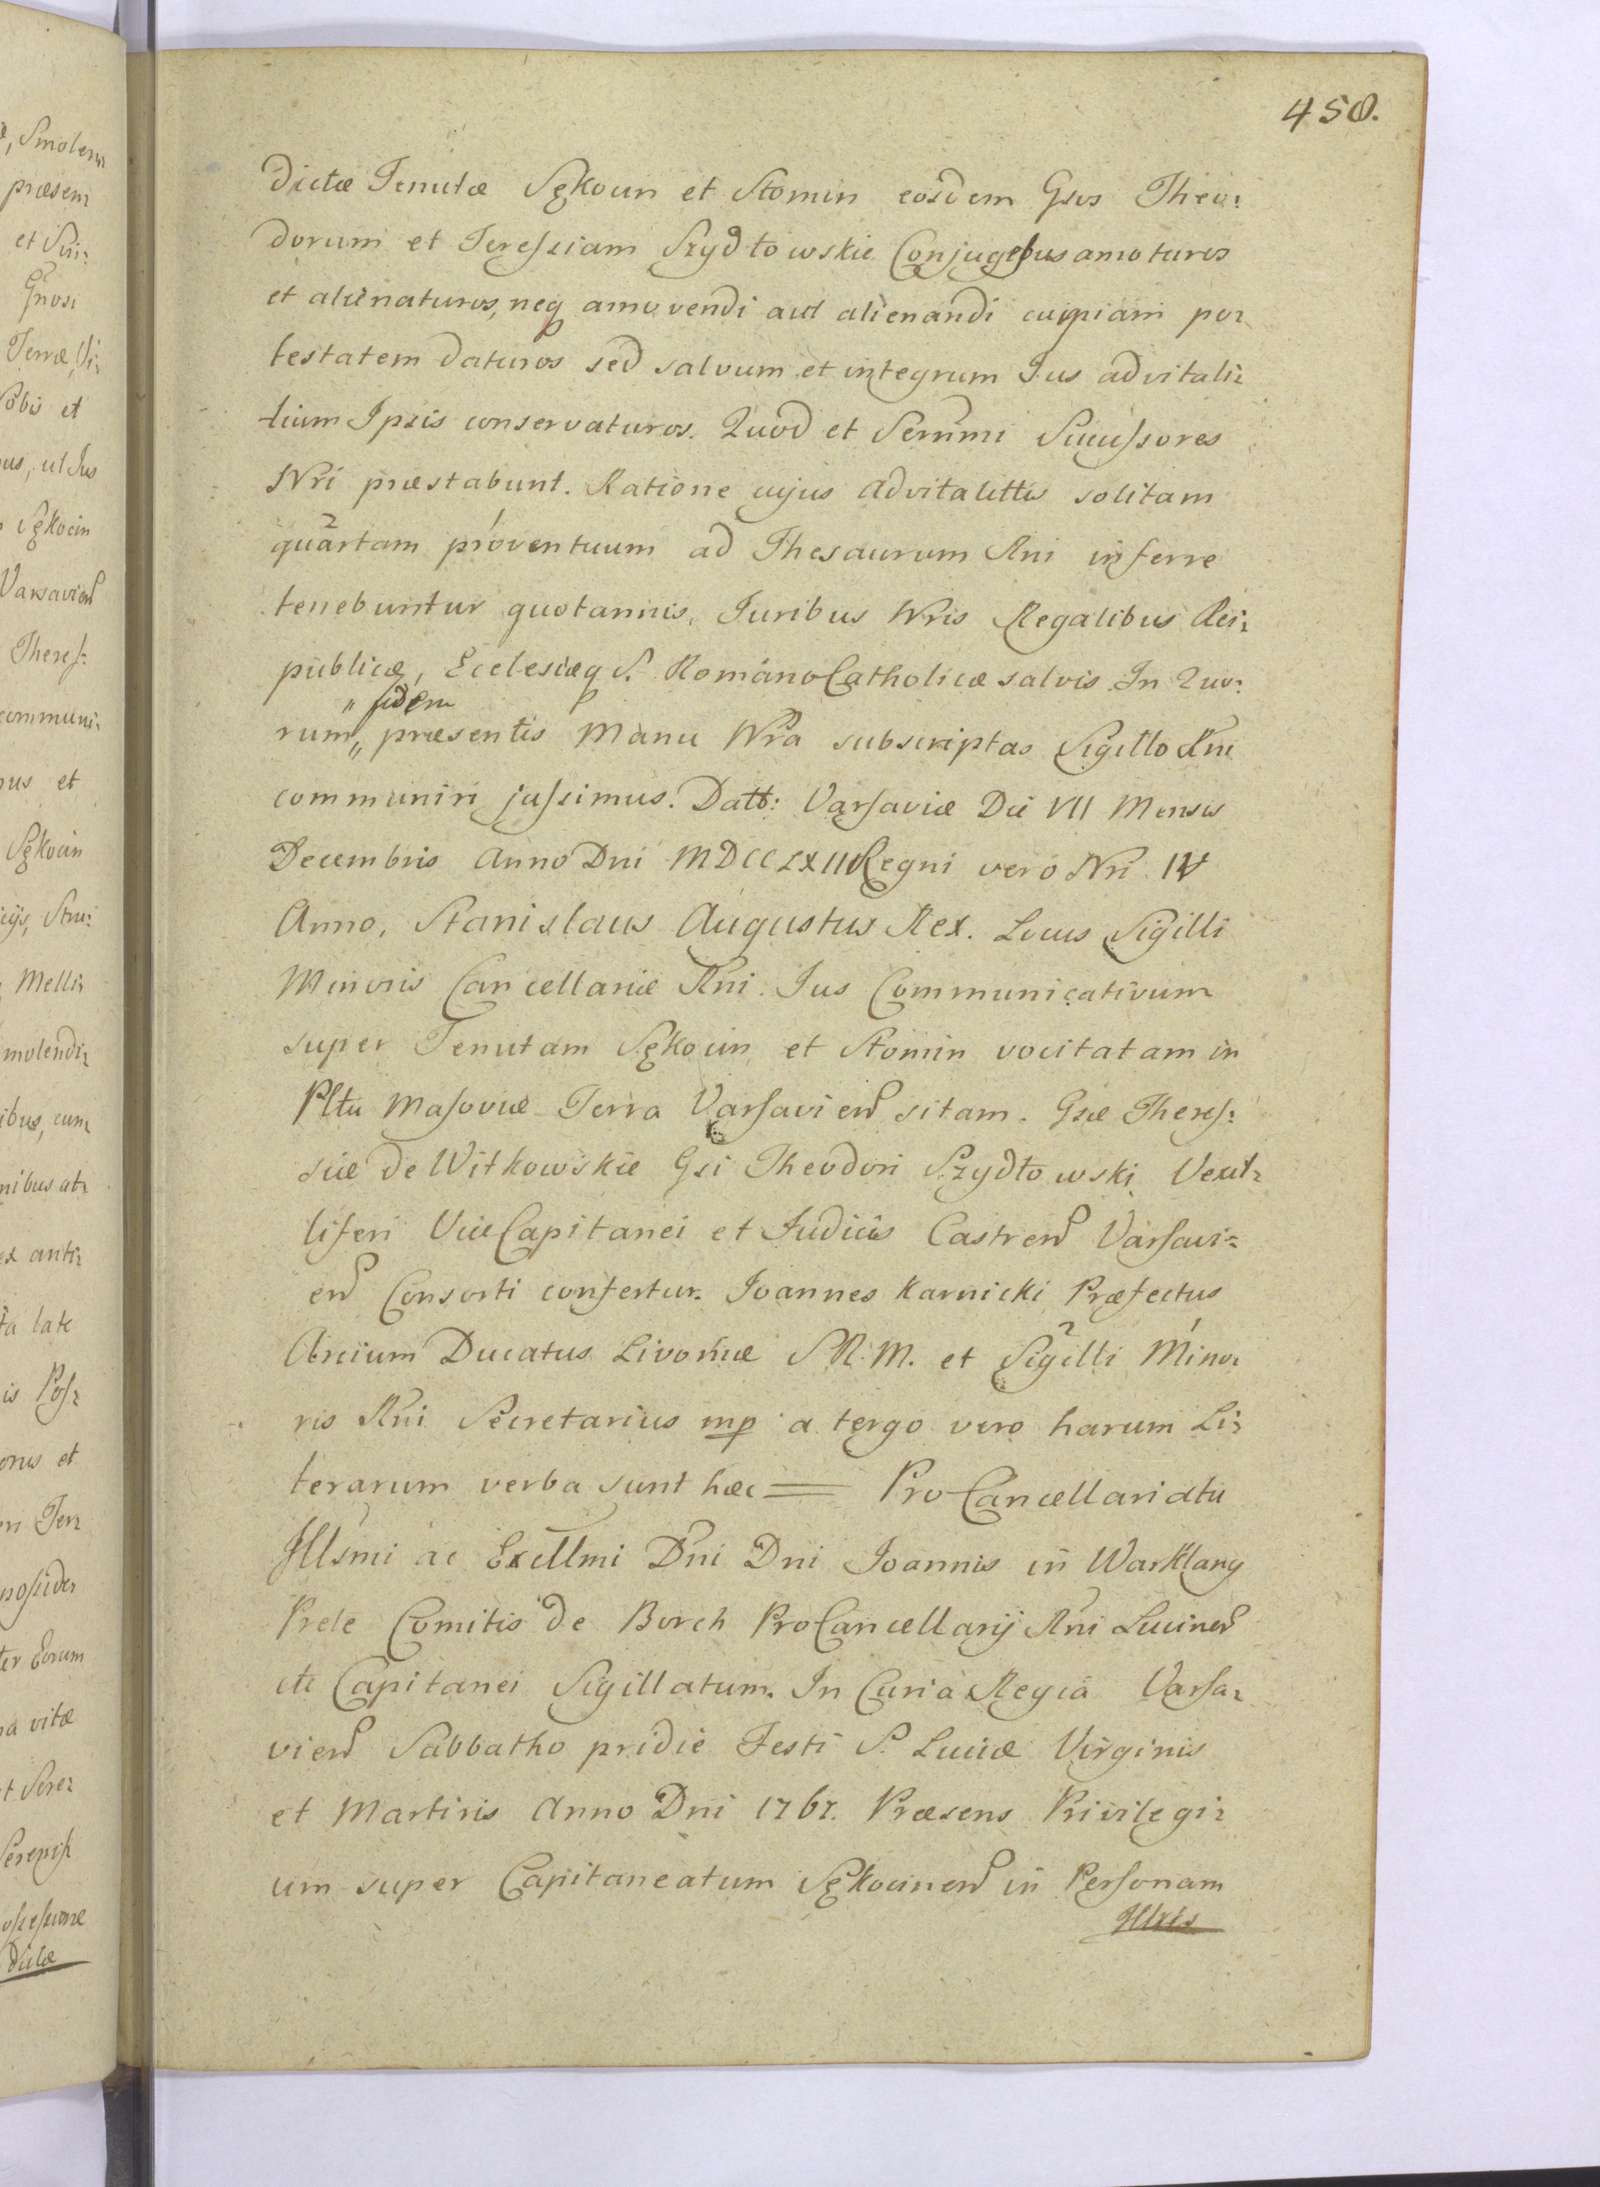 450.
dictæ Tenutæ Sękocin et Słomin eosdem Gsos Theo:
dorum et Teressiam Szydłowskie Conjugesus amoturos
et alienaturos, neq amovendi aut alienandi cuipiam po:
testatem daturos sed salvum et integrum Jus advitali:
tium Ipsis conservaturos. Quod et Sernmi Successores
Nri præstabunt. Ratione cujus Advitalittis solitam
quartam proventuum ad Thesaurum Rni inferre
tenebuntur quotannis, Juribus Nris Regalibus Rei:
publicæ, Ecclesiæq S. Romano Catholicæ salvis. In Quo:
" fidem
rum,, præsentes Manu Nra subscriptas Sigillo Rni
communiri jussimus. Datt: Varsaviæ Die VII Mensis
Decembris Anno Dni MDCCLXIII Regni vero Nri IV
Anno, Stanislaus Augustus Rex. Locus Sigilli
Minoris Cancellariæ Rni. Jus Communicativum
super Tenutam Sękocin et Słomin vocitatam in
Plttu Masoviæ Terra Varsavien sitam. Gsæ Theres:
siæ de Witkowskie Gsi Theodori Szydłowski Vexil:
liferi Vice Capitanei et Judicis Castren Varsavi:
en Consorti confertur. Joannes Karnicki Præfectus
Arcium Ducatus Livoniæ S R. M. et Sigilli Mino:
ris Rni Secretarius mp a tergo vero harum Li:
terarum verba sunt hæc = Pro Cancellariatu
Jllsmi ac Excllmi Dni Dni Joannis in Warklany
Prele Comitis de Borch ProCancellarij Rni Lucinen
ete Capitanei Sigillatum. In Curia Regia Varsa:
vien Sabbatho pridie Festi S. Luciæ Virginis
et Martiris Anno Dni 1767. Præsens Privilegi:
um super Capitaneatum Sękocinen in Personam
Jllris